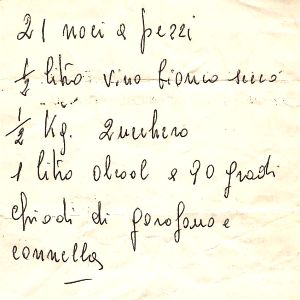 21 noci a pezzi
1/2 litro vino bianco secco
1/2 Kg. Zucchero
1 litro alcool a 90 gradi
chiodi di garofano e
cannella